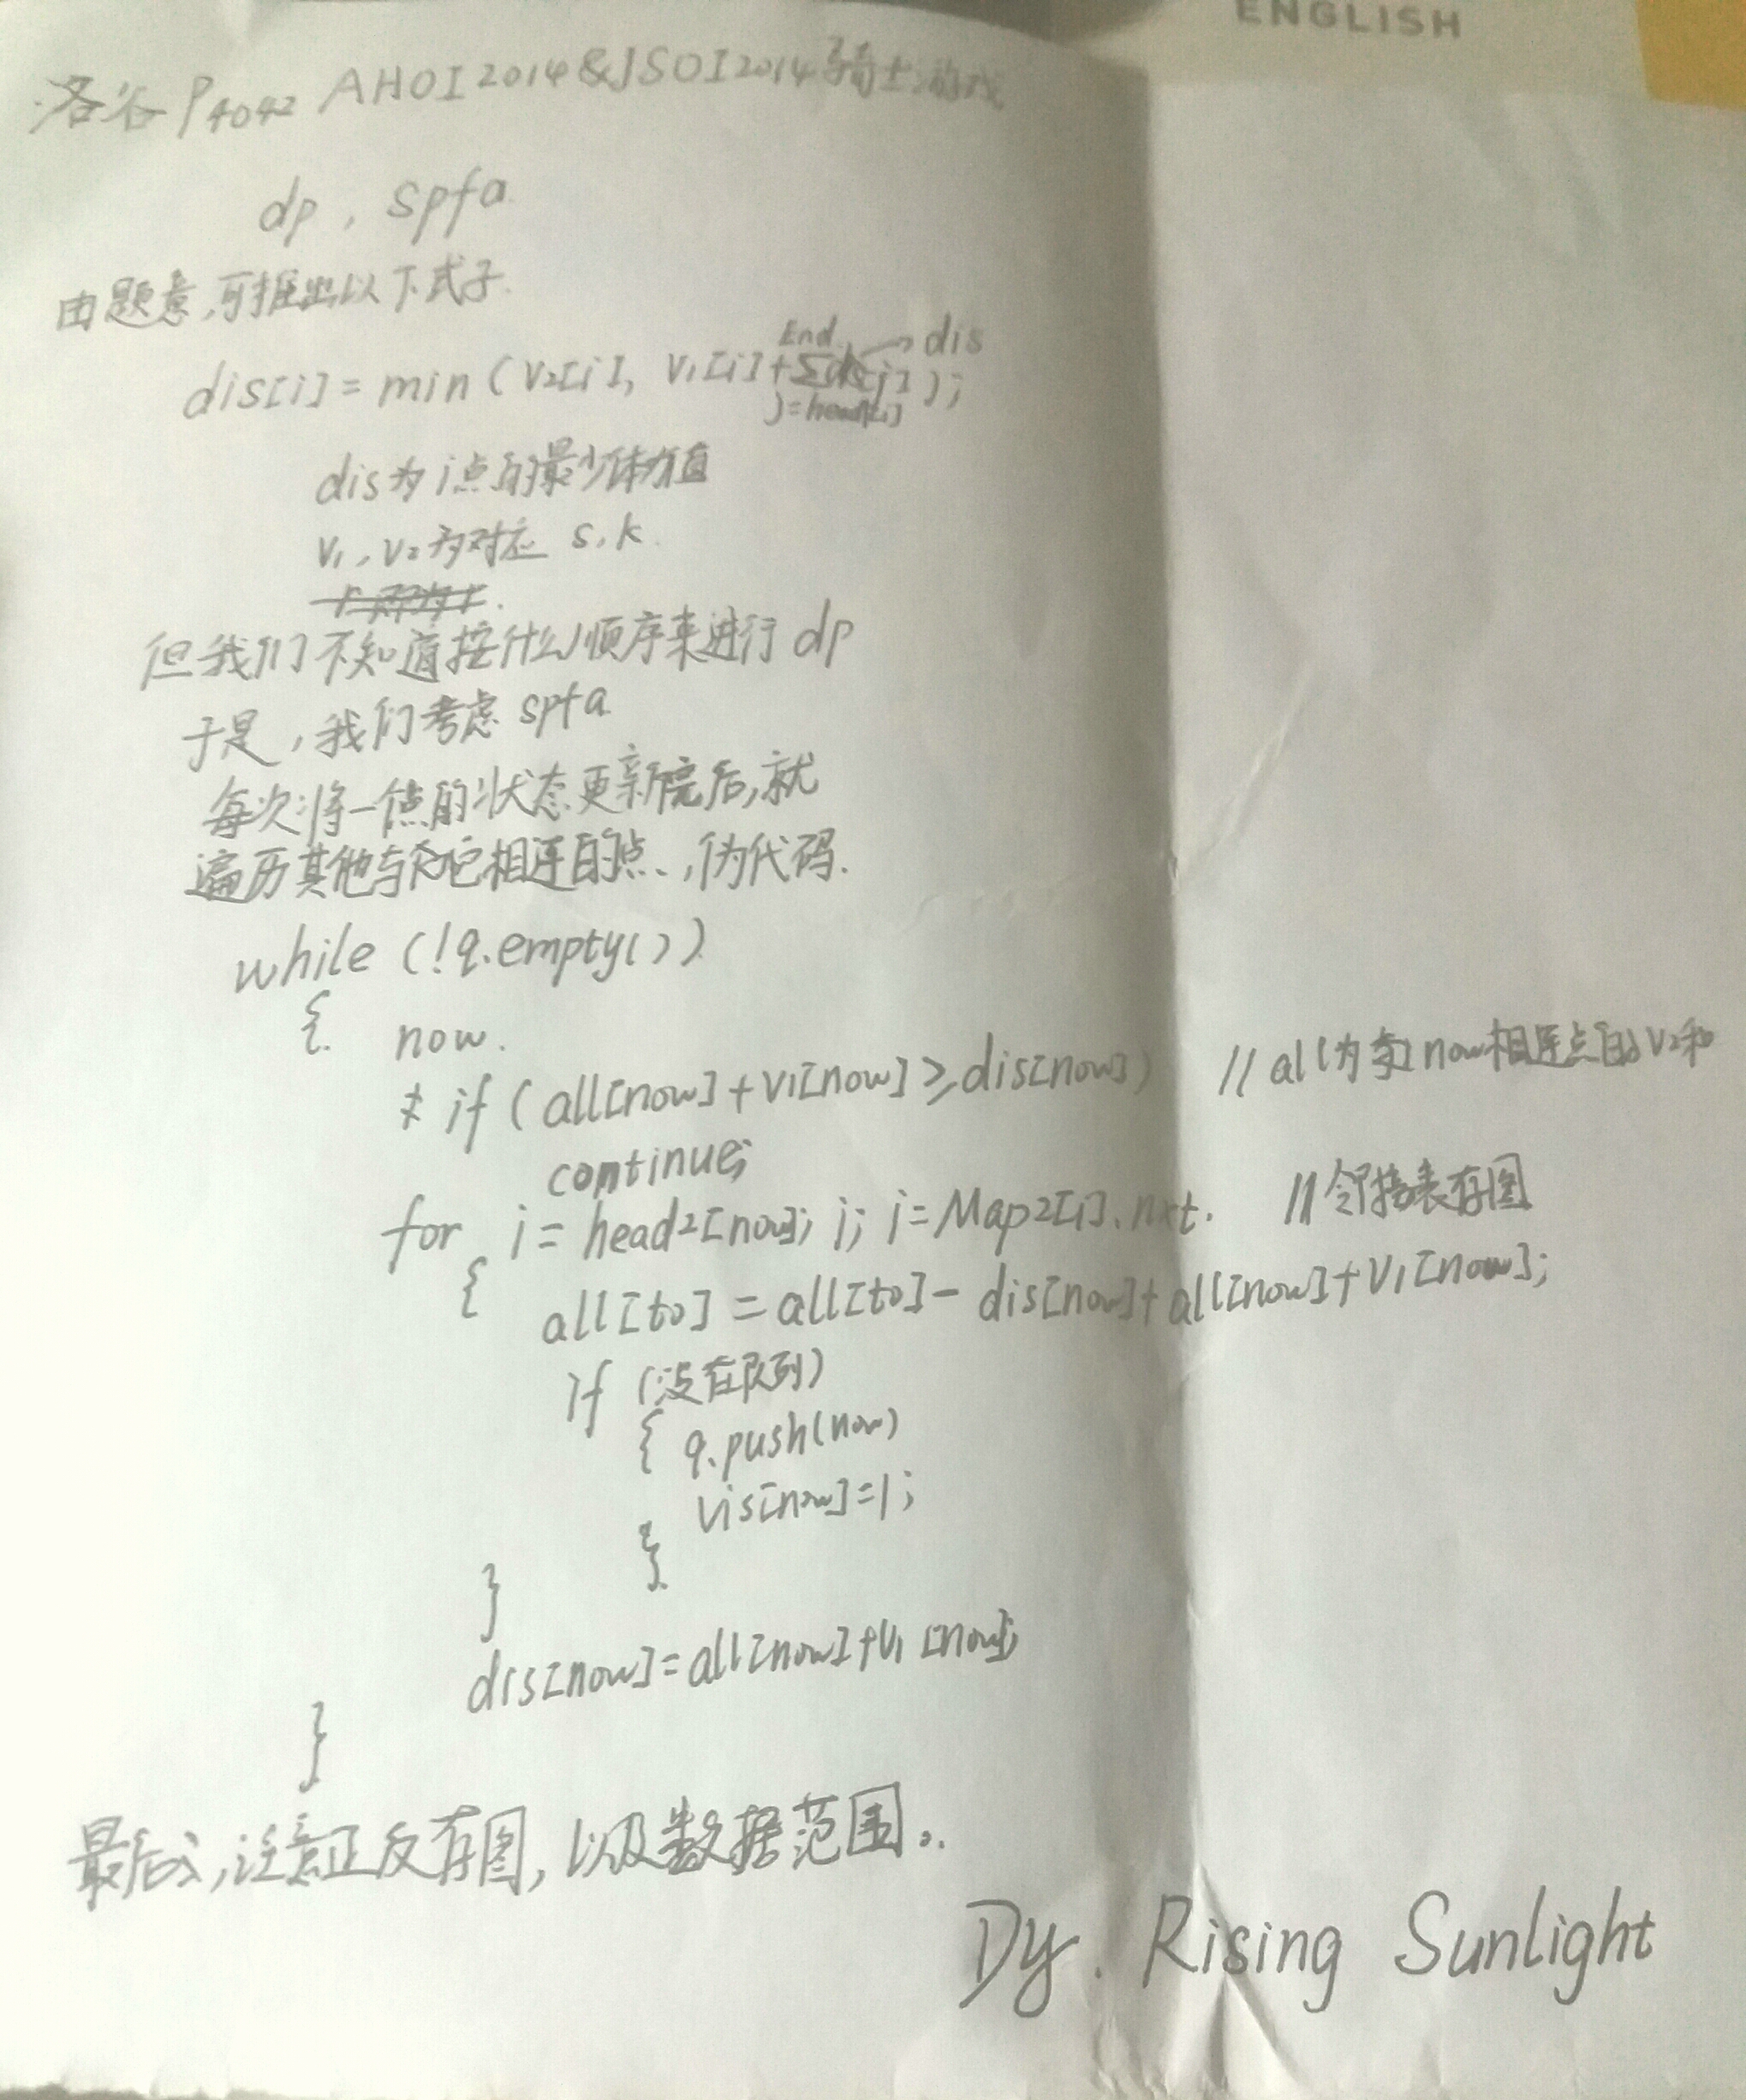 ENGLISH
洛谷 P4042 AHOI2014&JSOI2014 骑士游戏
dp , spfa.
由题意,可推出以下式子.
dis[i] = min ( v2[i], v1[i] + End Σ dis[j] j=head[i] ); → dis
dis为i点的最少体力值
v1, v2为对应 s, k.
r 即为 r.
但我们不知道按什么顺序来进行 dp
于是,我们考虑 spfa
每次将一点的状态更新完后,就
遍历其他与它相连的点、,伪代码.
while (!q.empty())
{ now.
if ( all[now] + v1[now] ≥ dis[now] ) // all为与now相连点的v2和
continue;
for i = head2[now]; i; i = Map2[i].nxt. // 邻接表存图
{ all[to] = all[to] - dis[now] + all[now] + v1[now];
if (没在队列)
{ q.push(now)
vis[now]=1;
}
}
dis[now] = all[now] + v1[now];
}
最后,注意正反存图,以及数据范围。.
Dy. Rising Sunlight